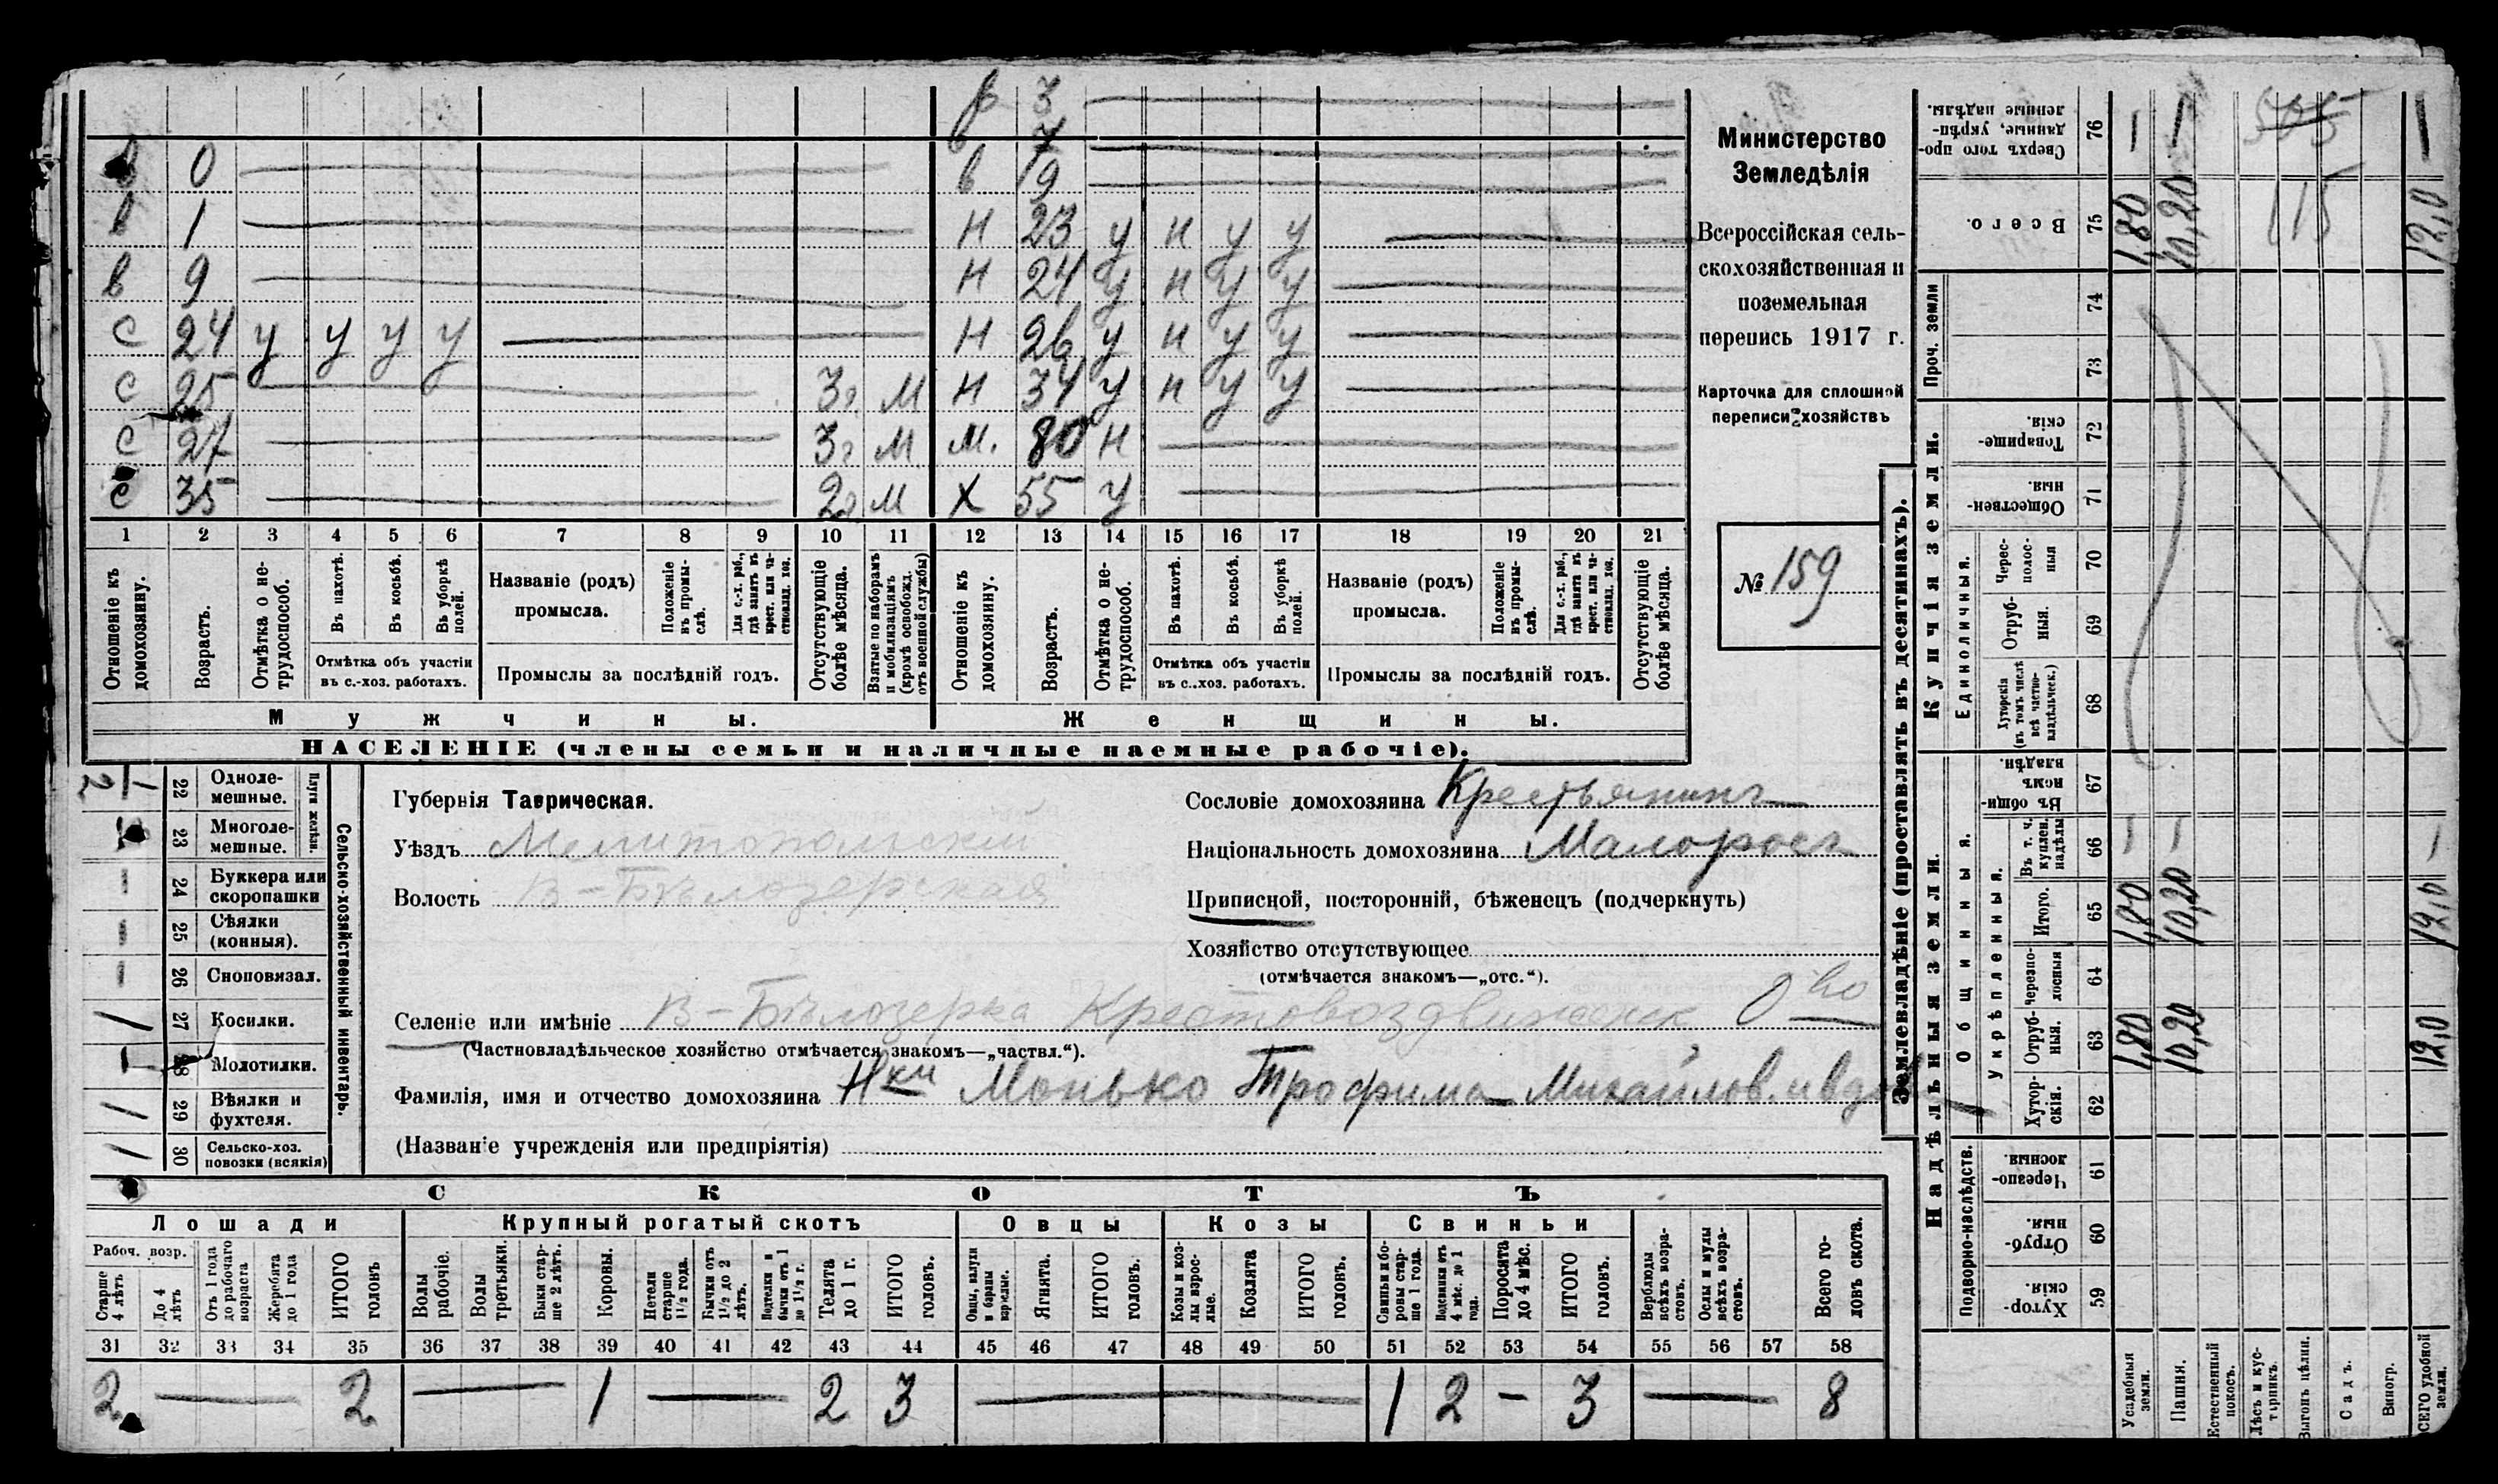 р 3
7
0 в 9
в 1 Н 23 у н у у
в 9 Н 24 у н у у
с 24 у у у у Н 26 у н у у
с 25 3г М Н 34 у н у у
с 27 3г М М. 80 Н
с 35 2г М Х 55 у
1 2 3 4 5 6 7 8 9 10 11 12 13 14 15 16 17 18 19 20 21
Отношеніе къ домохозяину.
Возрастъ.
Отмѣтка о не-
трудоспособ.
Въ пахотѣ.
Въ косьбѣ.
Въ уборкѣ полей.
Отмѣтка объ участіи
въ с.-хоз. работахъ.
Названіе (родъ)
промысла.
Положеніе въ промы-
слѣ.
Для с.-х. раб., гдѣ занятъ въ крест. или ча-
стновлад. хоз.
Промыслы за послѣдній годъ.
Отсутствующіе болѣе мѣсяца.
Взятые по наборамъ и мобилизаціямъ (кромѣ освобожд. отъ военной службы)
Отношеніе къ домохозяину.
Возрастъ.
Отмѣтка о не-
трудоспособ.
Въ пахотѣ.
Въ косьбѣ.
Въ уборкѣ полей.
Отмѣтка объ участіи
въ с.-хоз. работахъ.
Названіе (родъ)
промысла.
Положеніе въ промы-
слѣ.
Для с.-х. раб., гдѣ занята въ крест. или ча-
стновлад. хоз.
Промыслы за послѣдній годъ.
Отсутствующіе болѣе мѣсяца.
Мужчины.
Женщины.
НАСЕЛЕНІЕ (члены семьи и наличные наемные рабочіе).
Министерство
Земледѣлія
Всероссійская сель-
скохозяйственная и
поземельная
перепись 1917 г.
Карточка для сплошной
переписи хозяйствъ
№ 159
22 Однолемешные. 1
23 Многолемешные.
Плуги желѣзн.
24 Буккера или скоропашки
25 Сѣялки (конныя).
26 Сноповязал.
27 Косилки. 1
28 Молотилки.
29 Вѣялки и фухтеля. 1
30 Сельско-хоз. повозки (всякія) 1
Сельско-хозяйственный инвентарь.
Губернія Таврическая.
Уѣздъ Мелитопольскій
Волость В-Бѣлозерская
Сословіе домохозяина Крестьянинъ
Національность домохозяина Малоросъ
Приписной, посторонній, бѣженецъ (подчеркнуть)
Хозяйство отсутствующее
(отмѣчается знакомъ—„отс.“).
Селеніе или имѣніе В-Бѣлозерка Крестовоздвиженск. О-во
(Частновладѣльческое хозяйство отмѣчается знакомъ—„частвл.“).
Фамилія, имя и отчество домохозяина Н-ки Монько Трофима Михайлов.
(Названіе учрежденія или предпріятія)
СКОТЪ
Лошади Крупный рогатый скотъ Овцы Козы Свиньи
Рабоч. возр.
Старше 4 лѣтъ
До 4 лѣтъ
Отъ 1 года до рабочаго возраста
Жеребята до 1 года
ИТОГО головъ
Волы рабочіе.
Волы третьяки.
Быки стар-
ше 2 лѣтъ.
Коровы.
Нетели старше 1½ года.
Бычки отъ 1½ до 2 лѣтъ.
Подтелки и бычки отъ 1 до 1½ г.
Телята до 1 г.
ИТОГО головъ.
Овцы, валухи и бараны взрослые.
Ягнята.
ИТОГО головъ.
Козы и коз-
лы взрос-
лые.
Козлята
ИТОГО головъ.
Свиньи и бо-
ровы стар-
ше 1 года.
Подсвинки отъ 4 мѣс. до 1 года.
Поросята до 4 мѣс.
ИТОГО головъ.
Верблюды всѣхъ возра-
стовъ.
Ослы и мулы всѣхъ возра-
стовъ.
Всего го-
ловъ скота.
31 32 33 34 35 36 37 38 39 40 41 42 43 44 45 46 47 48 49 50 51 52 53 54 55 56 57 58
2 — 2 — 1 — 2 3 — 1 2 — 3 — 8
Землевладѣніе (проставлять въ десятинахъ).
Надѣльныя земли.
Купчія земли.
Проч. земли
Подворно-наслѣдств.
Общинныя.
Укрѣпленныя.
Единоличныя.
Хутор-
скія. 59
Отруб-
ныя. 60
Черезпо-
лосныя. 61
Хутор-
скія. 62
Отруб-
ныя. 63
Черезпо-
лосныя 64
Итого. 65
Въ т. ч. куплен. надѣлы 66
Въ общин-
номъ владѣн. 67
Хуторскія (въ томъ числѣ всѣ частно-
владѣльческ.) 68
Отруб-
ныя. 69
Черес-
полос-
ныя 70
Обществен-
ныя. 71
Товарище-
скія. 72
73
74
Всего. 75
Сверхъ того про-
данные, укрѣп-
ленные надѣлы. 76
Усадебныя земли. 1,80 1,80 — 1,80 —
Пашня. 10,20 10,20 — 10,20 —
Естественный покосъ.
Лѣсъ и кус-
тарникъ.
Выгонъ цѣлин.
Садъ.
Виногр.
ВСЕГО удобной земли. 12,0 12,0 — 12,0 —
505
115